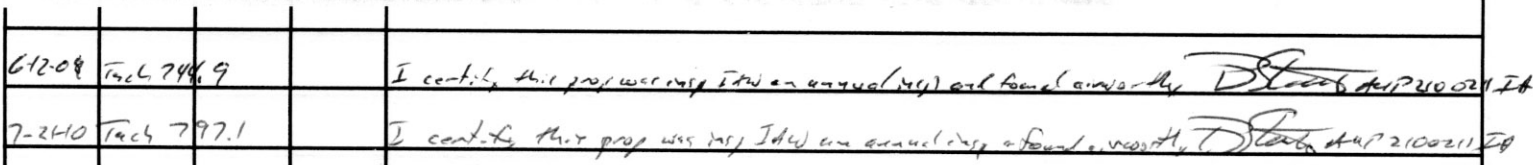 6-12-09 Tach 744.9 I certify this prop was insp IAW an annual insp and found airworthy A&P 2100211 IA
7-21-10 Tach 797.1 I certify this prop was insp IAW an annual insp & found airworthy A&P 2100211 IA